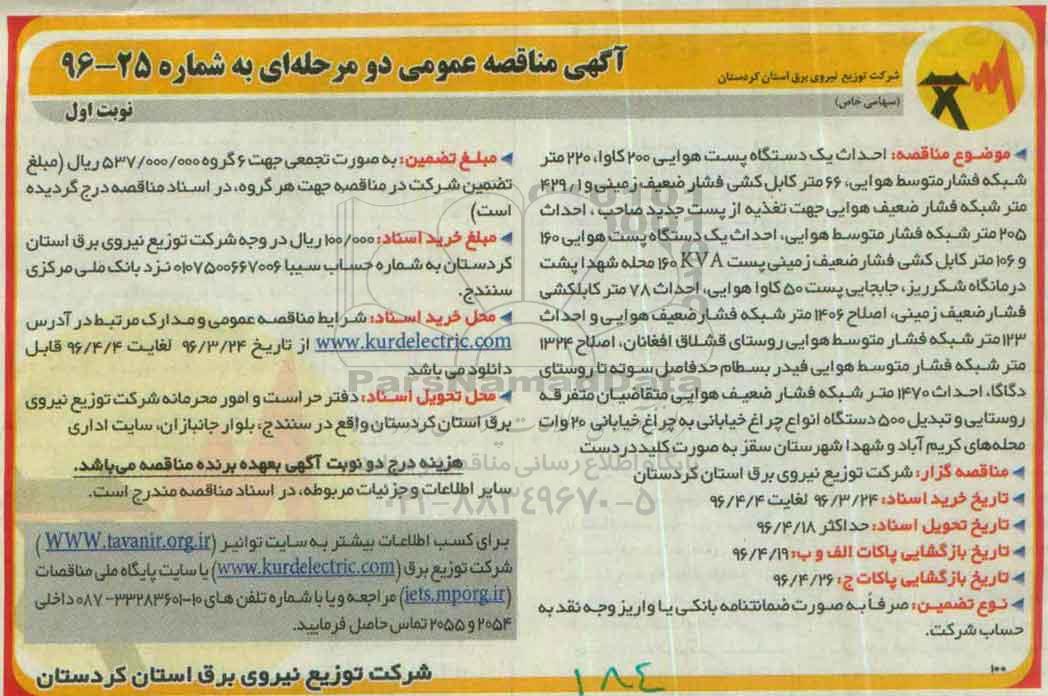 آگهی مناقصه عمومی دو مرحله‌ای به شماره ۲۵-۹۶
شرکت توزیع نیروی برق استان کردستان
(سهامی خاص)
نوبت اول
موضوع مناقصه: احداث یک دستگاه پست هوایی ۲۰۰ کاوا، ۲۲۰ متر
شبکه فشار متوسط هوایی، ۶۶ متر کابل کشی فشار ضعیف زمینی و ۴۲۹/۱
متر شبکه فشار ضعیف هوایی جهت تغذیه از پست جدید صاحب، احداث
۲۰۵ متر شبکه فشار متوسط هوایی، احداث یک دستگاه پست هوایی ۱۶۰
و ۱۰۶ متر کابل کشی فشار ضعیف زمینی پست ۱۶۰ KVA محله شهدا پشت
درمانگاه شکرریز، جابجایی پست ۵۰ کاوا هوایی، احداث ۷۸ متر کابلکشی
فشار ضعیف زمینی، اصلاح ۱۴۰۶ متر شبکه فشار ضعیف هوایی و احداث
۱۲۳ متر شبکه فشار متوسط هوایی روستای قشلاق افغانان، اصلاح ۱۳۲۴
متر شبکه فشار متوسط هوایی فیدر بسطام حدفاصل سوته تا روستای
دگاگا، احداث ۱۴۷۰ متر شبکه فشار ضعیف هوایی متقاضیان متفرقه
روستایی و تبدیل ۵۰۰ دستگاه انواع چراغ خیابانی به چراغ خیابانی ۲۰ وات
محله‌های کریم آباد و شهدا شهرستان سقز به صورت کلید در دست
مناقصه گزار: شرکت توزیع نیروی برق استان کردستان
تاریخ خرید اسناد: ۹۶/۳/۲۴ لغایت ۹۶/۴/۴
تاریخ تحویل اسناد: حداکثر ۹۶/۴/۱۸
تاریخ بازگشایی پاکات الف و ب: ۹۶/۴/۱۹
تاریخ بازگشایی پاکات ج: ۹۶/۴/۲۶
نوع تضمین: صرفاً به صورت ضمانتنامه بانکی یا واریز وجه نقد به
حساب شرکت.
۱۰۰
مبلغ تضمین: به صورت تجمعی جهت ۶ گروه ۵۳۷/۰۰۰/۰۰۰ ریال (مبلغ
تضمین شرکت در مناقصه جهت هر گروه، در اسناد مناقصه درج گردیده
است)
مبلغ خرید اسناد: ۱۰۰/۰۰۰ ریال در وجه شرکت توزیع نیروی برق استان
کردستان به شماره حساب سیبا ۰۱۰۷۵۰۰۶۶۷۰۰۶ نزد بانک ملی مرکزی
سنندج.
محل خرید اسناد: شرایط مناقصه عمومی و مدارک مرتبط در آدرس
www.kurdelectric.com از تاریخ ۹۶/۳/۲۴ لغایت ۹۶/۴/۴ قابل
دانلود می باشد
محل تحویل اسناد: دفتر حراست و امور محرمانه شرکت توزیع نیروی
برق استان کردستان واقع در سنندج، بلوار جانبازان، سایت اداری
هزینه درج دو نوبت آگهی بعهده برنده مناقصه می‌باشد.
سایر اطلاعات و جزئیات مربوطه، در اسناد مناقصه مندرج است.
برای کسب اطلاعات بیشتر به سایت توانیر (WWW.tavanir.org.ir)
شرکت توزیع برق (www.kurdelectric.com) یا سایت پایگاه ملی مناقصات
(iets.mporg.ir) مراجعه و یا با شماره تلفن های ۱۰-۳۳۲۸۳۶۰۱-۰۸۷ داخلی
۲۰۵۴ و ۲۰۵۵ تماس حاصل فرمایید.
شرکت توزیع نیروی برق استان کردستان
۱۸۴
ParsNamadData
پایگاه اطلاع رسانی مناقصه
۰۲۱-۸۸۳۴۹۶۷۰-۵